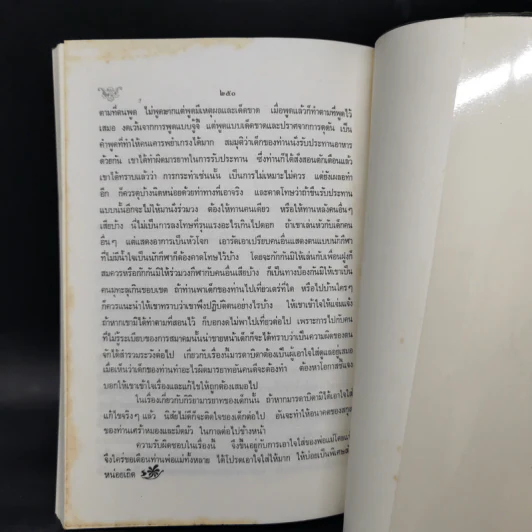 ๒๕๐
ตามที่ตนพูด ไม่พูดยกแต่พูดมีเหตุผลและเด็ดขาด เมื่อพูดแล้วก็ทำตามที่พูดไว้
เสมอ งดเว้นจากการพูดแบบจู้จี้ แต่พูดแบบเด็ดขาดและปราศจากการดุดัน เป็น
คำพูดที่ทำให้คนเคารพยำเกรงได้มาก สมมุติว่าเด็กของท่านนั่งรับประทานอาหาร
ด้วยกัน เขาได้ทำผิดมารยาทในการรับประทาน ซึ่งท่านก็ได้สั่งสอนตักเตือนแล้ว
เขาได้ทราบแล้วว่า การกระทำเช่นนั้น เป็นการไม่เหมาะไม่ควร แต่ยังเผลอทำ
อีก ก็ควรดุบ้างนิดหน่อยด้วยท่าทางที่เอาจริง และคาดโทษว่าถ้าขืนรับประทาน
แบบนั้นอีกจะไม่ให้มานั่งร่วมวง ต้องให้ทานคนเดียว หรือให้ทานหลังคนอื่นๆ
เสียบ้าง นี่ไม่เป็นการลงโทษที่รุนแรงอะไรเกินไปดอก ถ้าเขาเล่นหัวกับเด็กคน
อื่นๆ แต่แสดงอาการเป็นหัวโจก เอารัดเอาเปรียบคนอื่นแสดงตนแบบนักกีฬา
ที่ไม่มีน้ำใจเป็นนักกีฬาก็ต้องคาดโทษไว้บ้าง โดยจะกักกันมิให้เล่นกับเพื่อนฝูงก็
สมควรหรือกักกันมิให้ร่วมวงกีฬากับคนอื่นเสียบ้าง ก็เป็นทางป้องกันมิให้เขาเป็น
คนมุทะลุเกินขอบเขต ถ้าท่านพาเด็กของท่านไปเที่ยวเตร่ที่ใด หรือไปบ้านใครๆ
ก็ควรแนะนำให้เขาทราบว่าเขาพึงปฏิบัติตนอย่างไรบ้าง ให้เขาเข้าใจให้แจ่มแจ้ง
ถ้าหากเขามิได้ทำตามที่สอนไว้ ก็บอกงดไม่พาไปเที่ยวต่อไป เพราะการไปกับคน
ที่ไม่รู้ระเบียบของการสมาคมนั้นน่าขายหน้าเด็กก็จะได้ทราบว่าเป็นความผิดของตน
จักได้สำรวมระวังต่อไป เกี่ยวกับเรื่องนี้มารดาบิดาต้องเป็นผู้เอาใจใส่ดูแลอยู่เสมอ
เมื่อเห็นว่าเด็กของท่านทำอะไรผิดมารยาทอันคนดีจะต้องทำ ต้องหาโอกาสชี้แจง
บอกให้เขาเข้าใจเรื่องและแก้ไขให้ถูกต้องเสมอไป
ในเรื่องเกี่ยวกับกิริยามารยาทของเด็กนั้น ถ้าหากมารดาบิดามิได้เอาใจใส่
แก้ไขจริงๆ แล้ว นิสัยไม่ดีก็จะติดใจของเด็กต่อไป อันจะทำให้อนาคตของลูก
ของท่านเศร้าหมองและมืดมัว ในกาลต่อไปข้างหน้า
ความรับผิดชอบในเรื่องนี้ จึงขึ้นอยู่กับการเอาใจใส่ของพ่อแม่โดย
จึงใคร่ขอเตือนท่านพ่อแม่ทั้งหลาย ได้โปรดเอาใจใส่ให้มาก ให้บ่อยเป็นพิเศษ
หน่อยเถิด